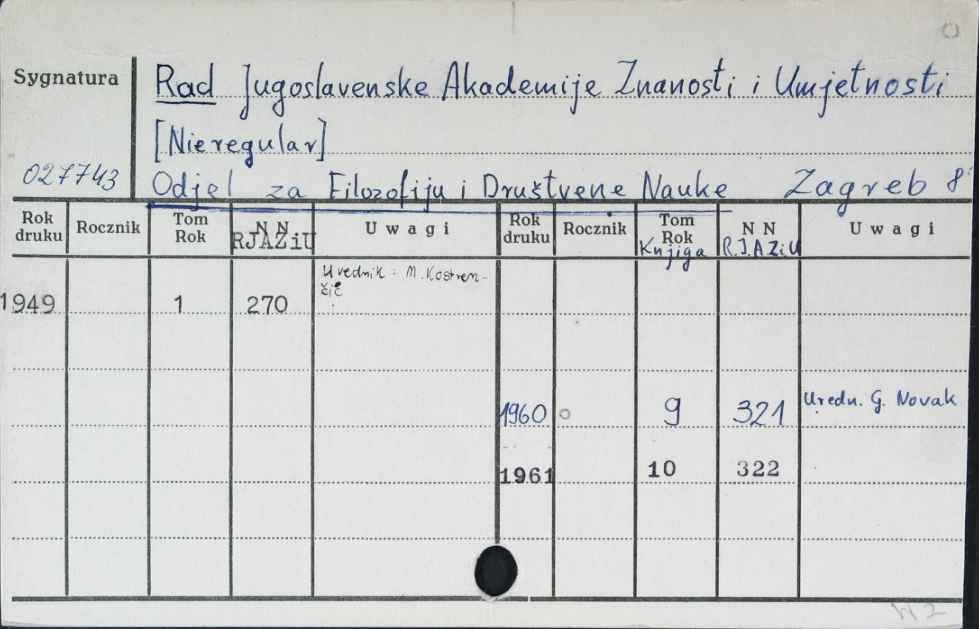 Sygnatura
Rad Jugoslavenske Akademije Znanosti i Umjetnosti
[Nieregular]
027743 Odjel za Filozofiju i Društvene Nauke Zagreb 8°
Rok druku Rocznik Tom Rok N N RJAZiU Uwagi Rok druku Rocznik Tom Rok Knjiga N N R.J.AZiU Uwagi
Urednik: M. Kostren-
1949 1 270 čić
1960 9 321 Uredn. G. Novak
1961 10 322